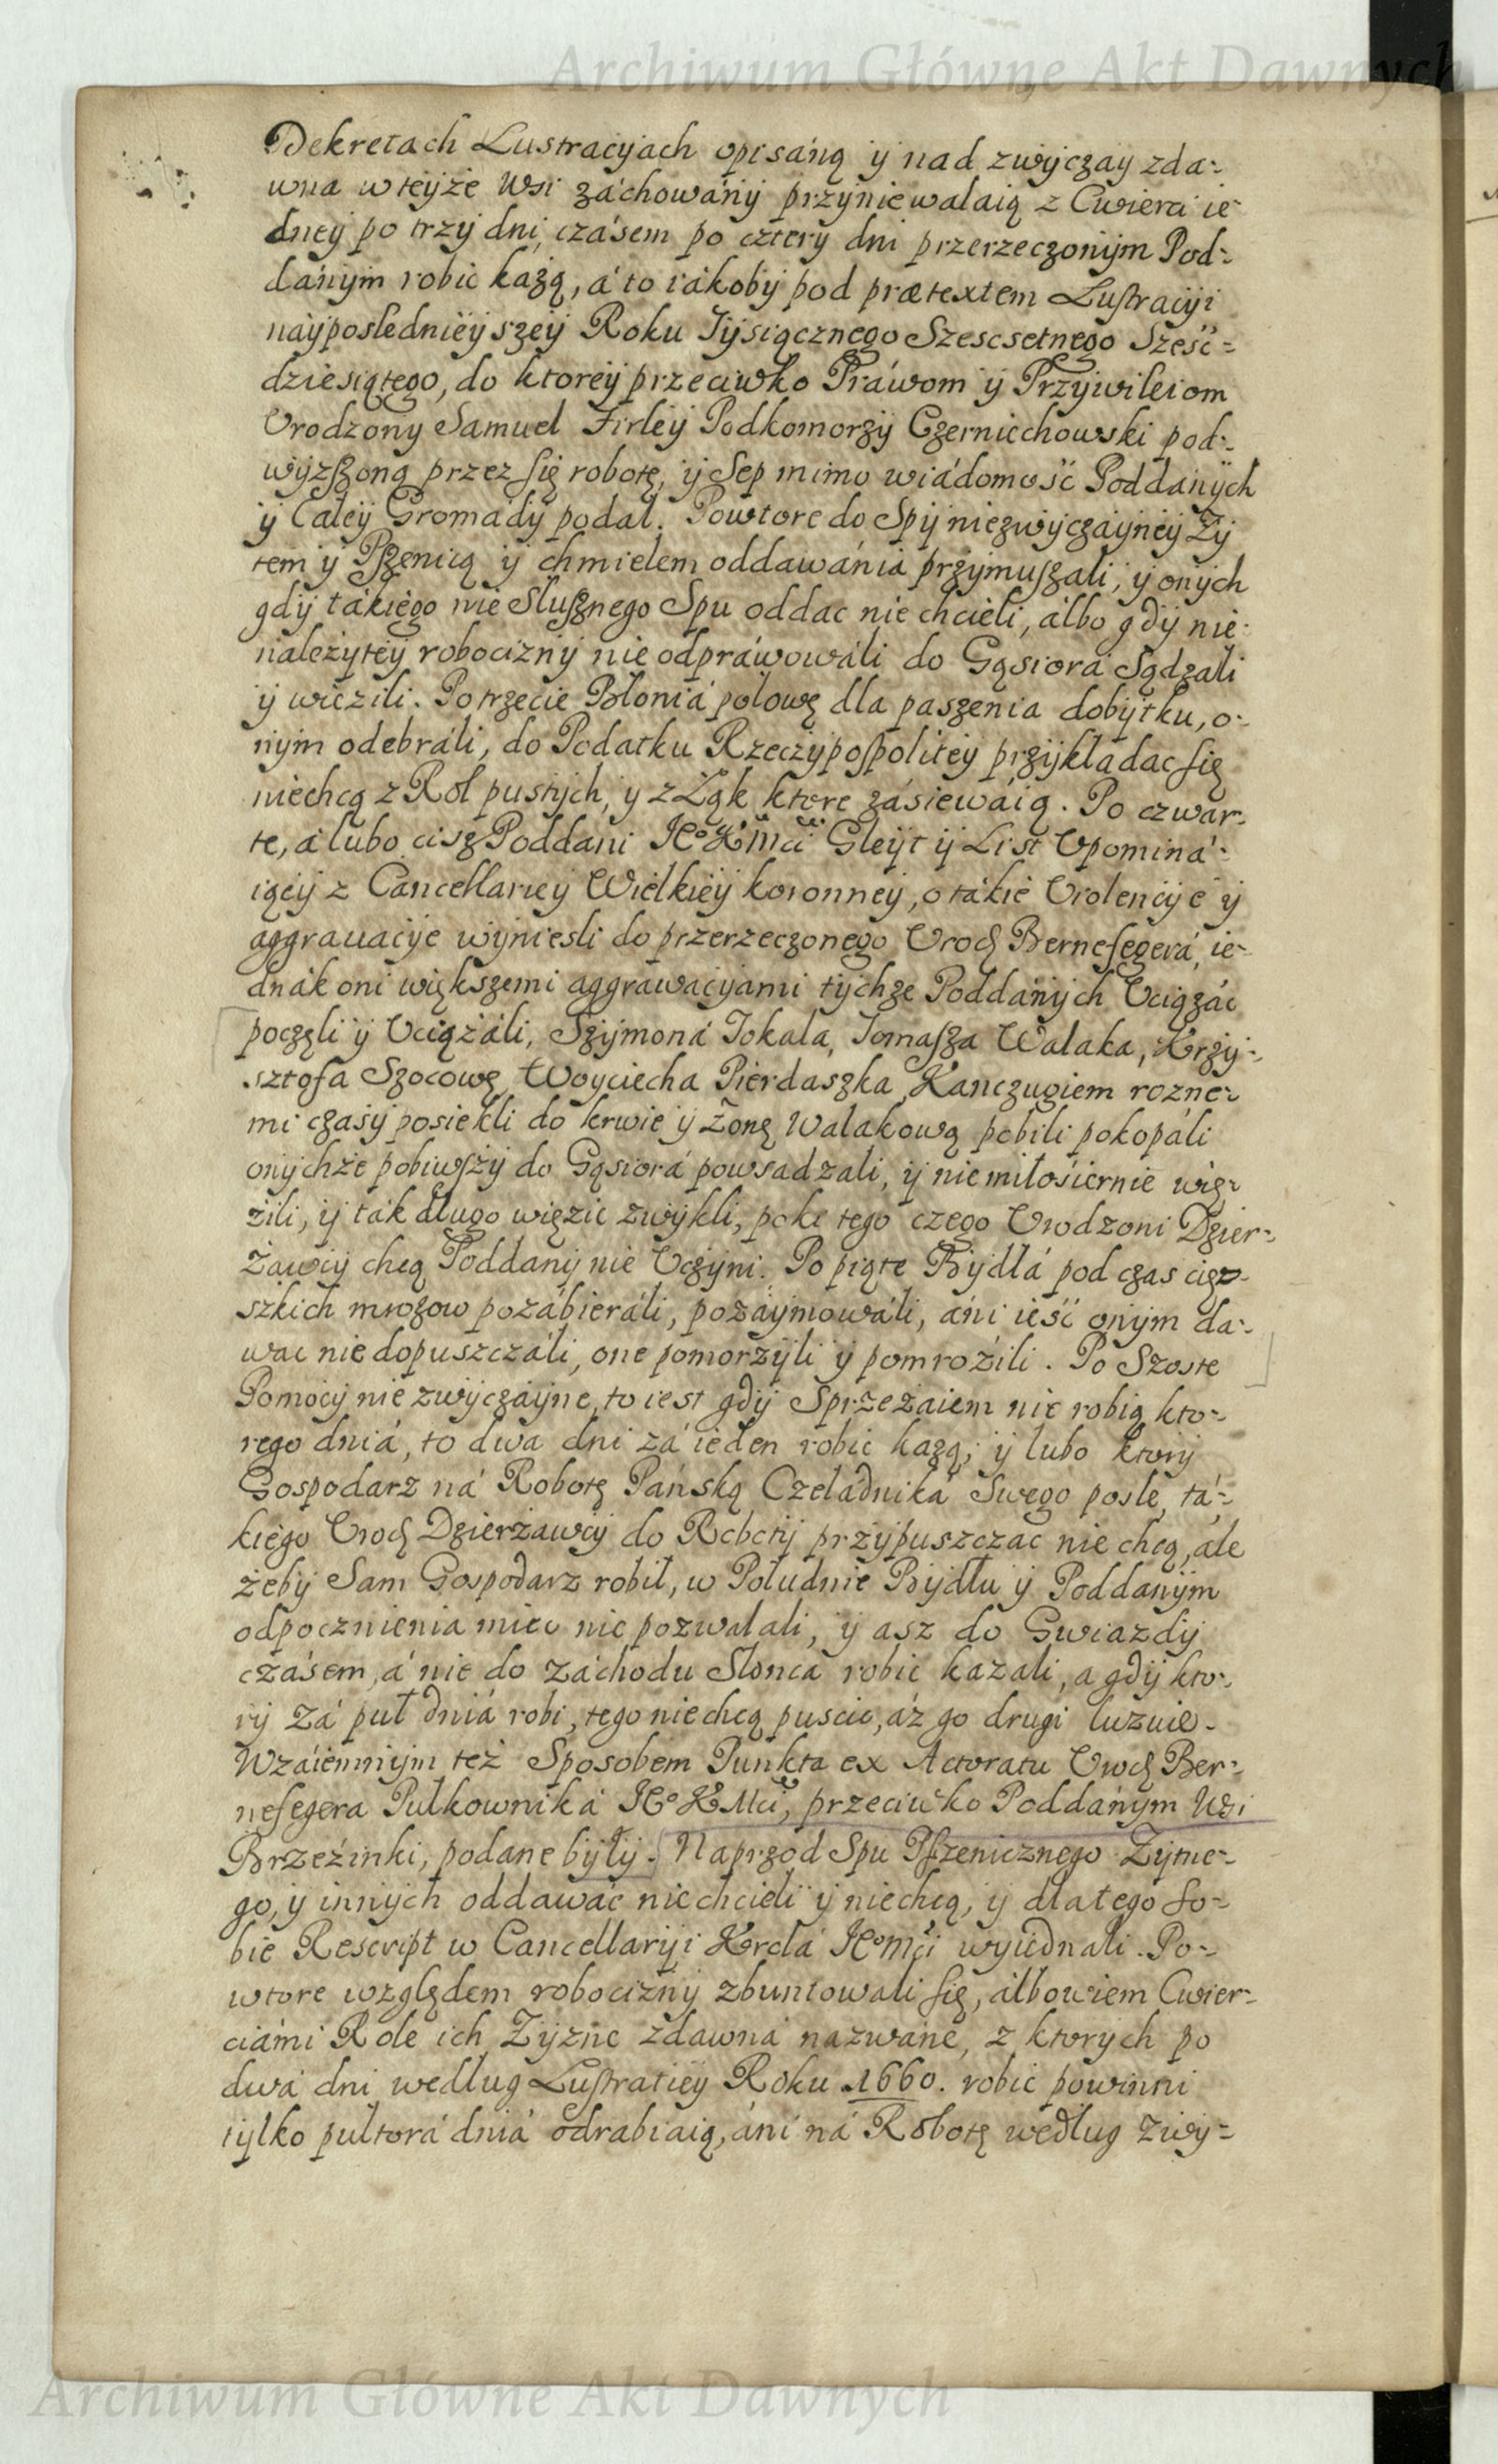 Archiwum Główne Akt Dawnych
Dekretach Lustracyjach opisáną ÿ nad zwÿczaÿ zda=
wna wteÿże Wsi záchowánÿ przÿniewalaią z Cwierci ie=
dneÿ po trzÿ dni, czásem po czterÿ dni przerzeczonÿm Pod=
dánÿm robić każą, á to iákobÿ pod prætextem Lustracÿi
naÿposledniëÿszeÿ Roku Tÿsiącznego Szescsetnego Sześć=
dziesiątego, do ktoreÿ przeciwko Práwom ÿ Przÿwileiom
Vrodzony Samuel Firleÿ Podkomorzÿ Czerniechowski pod=
wÿzszoną przez się robotę, ÿ Sep mimo wiádomość Poddánÿch
ÿ Całeÿ Gromadÿ podał. Powtore do Spÿ niezwÿczáÿneÿ Zÿ
tem ÿ Pszenicą ÿ chmielem oddawánia przÿmuszali, ÿ onÿch
gdÿ tákiego nie Słusznego Spu oddac nie chcieli, álbo gdÿ nie=
należÿteÿ robociznÿ nie odpráwowáli do Gąsiorá Sądzali
ÿ wiezili. Potrzecie Błoniá połowę dla paszenia dobÿtku, o=
nÿm odebráli, do Podatku Rzeczÿpospoliteÿ przÿkładac się
niechcą z Rol pustÿch, ÿ z Łąk ktore zásiewáią. Po czwar=
te, á lubo cisz Poddani JEº KMci Gleÿt ÿ List Vpominá=
iącÿ z Cancellarieÿ Wielkieÿ koronneÿ, o tákie Violencÿe ÿ
aggravacÿe wÿniesli do przerzeczonego Vrodz Bernesegerá, ie=
dnák oni większemi aggrawacÿami tÿchze Poddánÿch Vciązác
poczęli ÿ Vciążáli, Szÿmoná Tokala, Tomasza Walaka, Krzÿ=
sztofa Szocowę, Woyciecha Pierdaszka, Kanczugiem rozne=
mi czasÿ posiekli do krwie ÿ żonę Walakową pobili pokopáli
onÿchże pobiwszÿ do Gąsiorá powsadzali, ÿ niemiłosiernie wię=
żili, ÿ ták długo więzic zwÿkli, poki tego czego Vrodzoni Dzier=
żawcÿ chcą Poddanÿ nie Vczÿni. Po piąte Bÿdłá pod czas cięż=
szkich mrozow pozábieráli, pozáÿmowáli, áni ieść onÿm da=
wac nie dopuszczáli, one pomorzÿli ÿ pomroźili. Po Szoste
Pomocÿ nie zwÿczáÿne, to iest gdÿ Sprzeżaiem nie robią kto=
rego dniá, to dwa dni zá ieden robic każą, ÿ lubo ktorÿ
Gospodarz ná Robotę Páńską Czeladniká Swego posle, tá=
kiego Vrodz Dzierżawcÿ do Robotÿ przÿpuszczac nie chcą, ale
żebÿ Sam Gospodarz robił, w Południe Bÿdłu ÿ Poddanÿm
odpocznienia miec nie pozwalali, ÿ asz do Gwiazdÿ
czásem, á nie do záchodu Słonca robic kazali, a gdÿ kto=
rÿ zá puł dniá robi, tego niechcą puscic, áż go drugi luzuie.
Wzáiemnÿm też Sposobem Punkta ex Actoratu Vrodz Ber=
nesegera Pułkowniká JEº K Mci, przeciwko Poddánÿm Wsi
Brzeźinki, podane bÿłÿ. Naprzod Spu Pszenicznego Zÿtne=
go, ÿ innÿch oddawác niechcieli ÿ niechcą, ÿ dlatego so=
bie Rescript w Cancellarÿi Krolá JEºMci wÿiednali. Po=
wtore względem robociznÿ zbuntowali się, álbowiem Cwier=
ciámi Role ich Zÿzne zdawná nazwáne, z ktorÿch po
dwá dni według Lustratieÿ Roku 1660. robic powinni
tÿlko pułtorá dniá odrabiaią, áni ná Robotę według zwÿ=
Archiwum Główne Akt Dawnych